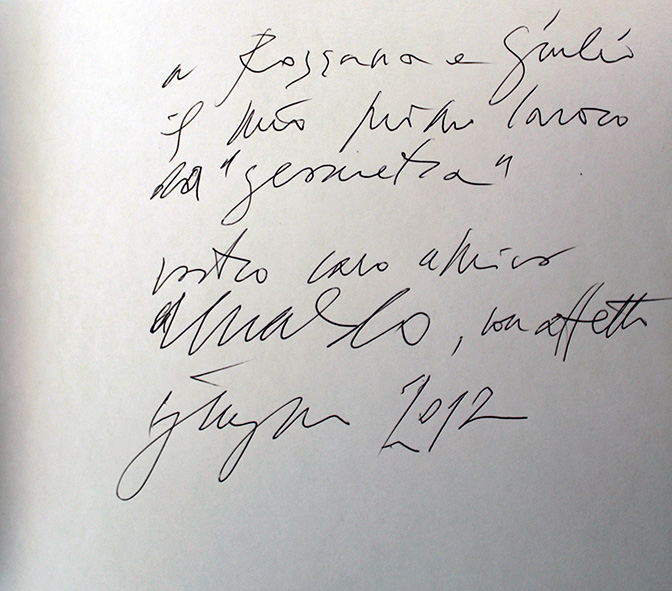 a Rossana e Giulio
il mio primo lavoro
da "geometra"
vostro caro amico
Arnaldo, con affetto
giugno 2012